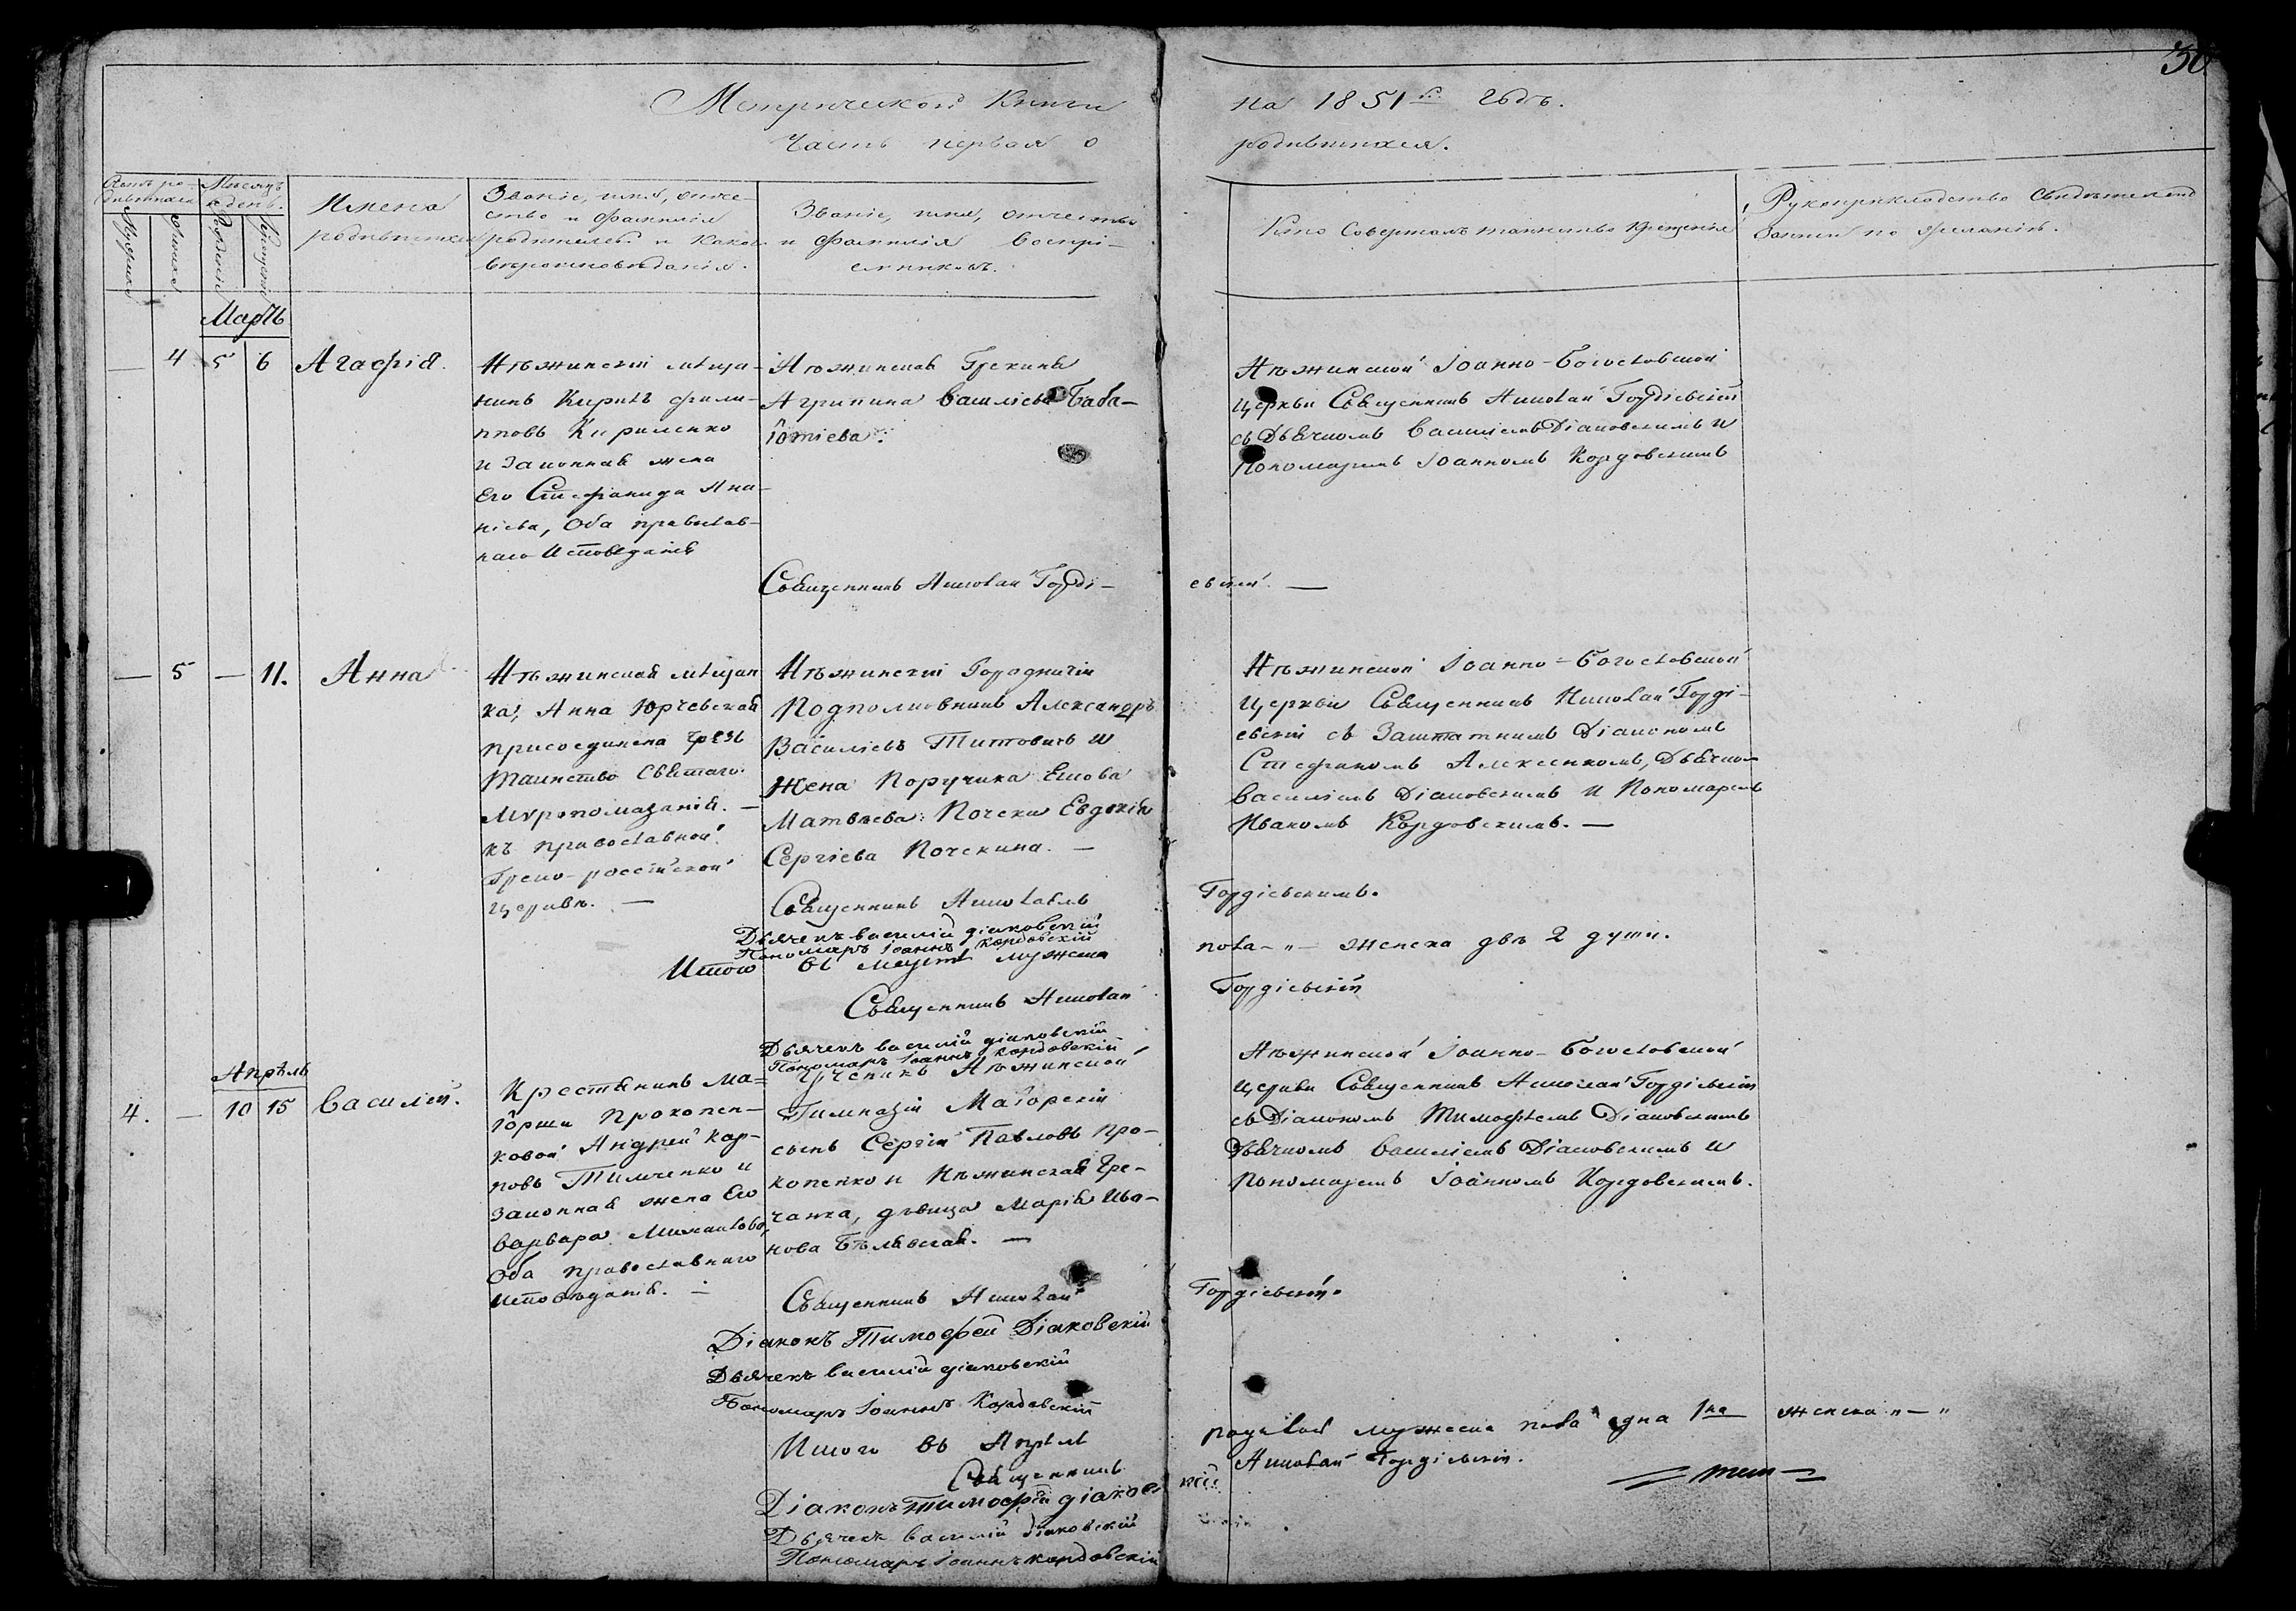 30
Метрической Книги на 1851й годъ.
Часть первая о родившихся.
Мужеска
Женска
Месяцъ и день.
Рожденія
Крещенія
Имена родившихся
Званіе, имя, отче-
ство и фамилія
родителей и какого
вѣроисповѣданія.
Званіе, имя, отчество
и фамилія воспрі-
емниковъ.
Кто совершалъ таинство крещенія
Рукоприкладство свидѣтелей
записи по желанію.
Мартъ
— 4 5 6 Агафія.
Нѣжинскій мѣща-
нинъ Кирилъ Фили-
пповъ Кириленко
и законная жена
его Стефанида Ана-
ніева, оба православ-
наго исповеданія
Нѣжинская Грекиня
Агрипина Василіева Баба-
Нѣжинской Іоанно-Богословской
церкви Священникъ Николай Гордіевскій
съ Дьячкомъ Василіемъ Діаковскимъ и
Пономаремъ Іоанномъ Кордовскимъ
Священникъ Николай Горді-
евскій. —
— 5 — 11. Анна
Нѣжинская мѣщан
ка, Анна Юрчевская
присоединена чрезъ
таинство Святаго
Муропомазанія. —
къ православной
Греко-россійской
церкви. —
Нѣжинскій Городничій
Подполковникъ Александръ
Василіевъ Титовичъ и
Жена Поручика
Матвѣева: Почеки Евдокія
Сергіева Почекина. —
Нѣжинской Іоанно-Богословской
церкви Священникъ Николай Горді-
евскій съ Заштатнимъ Діакономъ
Стефаномъ Алексенкомъ, Дьячком
Василіемъ Діаковскимъ и Пономаремъ
Иваномъ Кордовскимъ. —
Священникъ Николай
Гордіевскимъ.
Дьячекъ василій діаковскій
Пономаръ Іоаннъ Кордовскій
Итого въ мартѣ мужска
пола — „ — женска двѣ 2 души.
Священникъ Николай
Гордіевскій
Дьячекъ василій діаковскій
Пономаръ Іоаннъ Кордовскій
Апрѣль
4. — 10 15 Василій.
Крестянинъ Ма-
іорши Прокопен-
ковой Андрей Кар-
повъ Тимченко и
законная жена его
Варвара Михайлова,
оба православнаго
исповѣданія. —
Ученикъ Нѣжинской
Гимназіи Маіорскій
сынъ Сергій Павловъ Про-
копенко и Нѣжинская Гре-
чанка, дѣвица Марія Ива-
нова Бѣлявская. —
Нѣжинской Іоанно-Богословской
церкви Священникъ Николай Гордіевскій
съ Діакономъ Тимофѣемъ Діаковскимъ
Дьячкомъ Василіемъ Діаковскимъ и
Пономаремъ Іоанномъ Кордовскимъ.
Священникъ Николай
Гордіевскій.
Діаконъ Тимофей Діаковскій
Дьячекъ василій діаковскій
Пономаръ Іоаннъ Кордовскій
Итого въ Апрѣлѣ
мужеска пола една 1на женска „ — „
Священникъ
Николай Гордіевскій.
Діаконъ Тимофей діаковскій
Дьячекъ василій діаковскій
Пономаръ Іоаннъ кордовскій